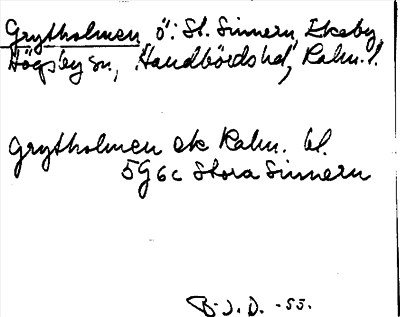 Grytholmen ö: St. Sinnern, Ekeby,
Högsby sn, Handbörds hd, Kalm. l.
Grytholmen ek Kalm. bl.
5G6c Stora Sinnern
B.J.D. -53.